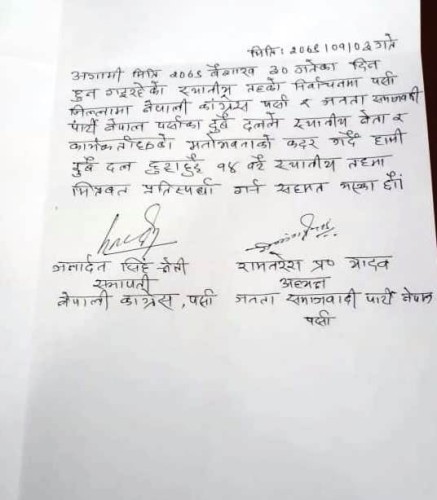 मिति: २०७९/०१/०३ गते
अगामी मिति २०७९ बैशाख ३० गतेका दिन
हुन गइरहेको स्थानीय तहको निर्वाचनमा पर्सा
जिल्लामा नेपाली कांग्रेस पर्सा र जनता समाजवादी
पार्टी नेपाल पर्साका दुबै दलले स्थानीय नेता र
कार्यकर्ताहरुको मनोभावनाको कदर गर्दै हामी
दुबै दल छुट्टाछुट्टै १४ वटै स्थानीय तहमा
मित्रवत प्रतिस्पर्धा गर्न सहमत भएका छौं।
जनार्दन सिंह क्षेत्री
सभापती
नेपाली कांग्रेस, पर्सा
रामनरेश प्र० यादव
अध्यक्ष
जनता समाजवादी पार्टी नेपाल
पर्सा